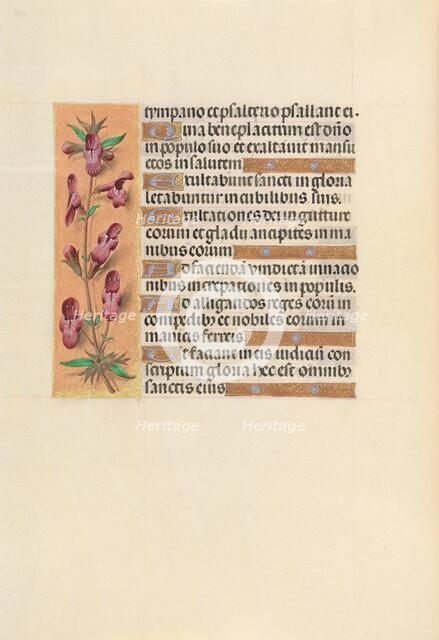 tympano et psalterio psallant ei.
Quia beneplacitum est dño
in populo suo et exaltavit mansu
etos in salutem
Exultabunt sancti in gloria
letabuntur in cubilibus suis.
Exultationes dei in gutture
eorum et gladii ancipites in ma
nibus eorum
Ad faciendã vindictã in nacio
nibus increpationes in populis.
Ad alligandos reges eorũ in
compedibꝰ et nobiles eorum in
manicis ferreis.
Ut faciant in eis iudiciũ con
scriptum gloria hec est omnibꝰ
sanctis eius
Heritage
Heritage
Heritage
Heritage
Heritage
Heritage